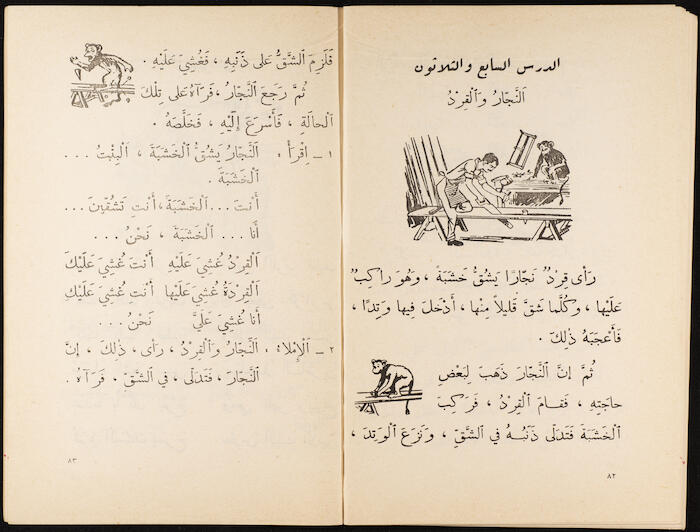 الدرس السابع والثلاثون
اَلنَّجَّارُ وَٱلْقِرْدُ
رَأَى قِرْدٌ نَجَّارًا يَشُقُّ خَشَبَةً ، وَهُوَ رَاكِبٌ
عَلَيْها ، وَكُلَّما شَقَّ قَلِيلاً مِنْها ، أَدْخَلَ فِيها وَتِدًا ،
فَأَعْجَبَهُ ذٰلِكَ .
ثُمَّ إِنَّ ٱلنَّجَّارَ ذَهَبَ لِبَعْضِ
حاجَتِهِ ، فَقـامَ ٱلْقِرْدُ ، فَرَكِبَ
ٱلْخَشَبَةَ فَتَدَلَّى ذَنَبُـهُ فِي ٱلشَّقِّ ، وَنَزَعَ ٱلْوَتِدَ ،
٨٢
فَلَزِمَ ٱلشَّقُّ عَلى ذَنَبِهِ ، فَغُشِيَ عَلَيْهِ .
ثُمَّ رَجَعَ ٱلنَّجّارُ ، فَرَآهُ عَلى تِلْكَ
ٱلْحالَةِ ، فَأَسْرَعَ إِلَيْهِ ، فَخَلَّصَهُ .
١ ـ اِقْرَأْ : اَلنَّجّارُ يَشُقُّ ٱلْخَشَبَةَ ، اَلْبِنْتُ ...
ٱلْخَشَبَةَ .
أَنْتَ ... ٱلْخَشَبَةَ ، أَنْتِ تَشُقِّينَ ...
أَنا ... ٱلْخَشَبَةَ ، نَحْنُ ...
اَلْقِرْدُ غُشِيَ عَلَيْهِ أَنْتَ غُشِيَ عَلَيْكَ
اَلْقِرْدَةُ غُشِيَ عَلَيْها أَنْتِ غُشِيَ عَلَيْكِ
أَنا غُشِيَ عَلَيَّ نَحْنُ ...
٢ ـ اَلْإِمْلاءُ : اَلنَّجّارُ وَٱلْقِرْدُ ، رَأى ، ذٰلِكَ ، إِنَّ
ٱلنَّجّارَ ، فَتَدَلَّى ، فِي ٱلشَّقِّ ، فَرَآهُ .
٨٣